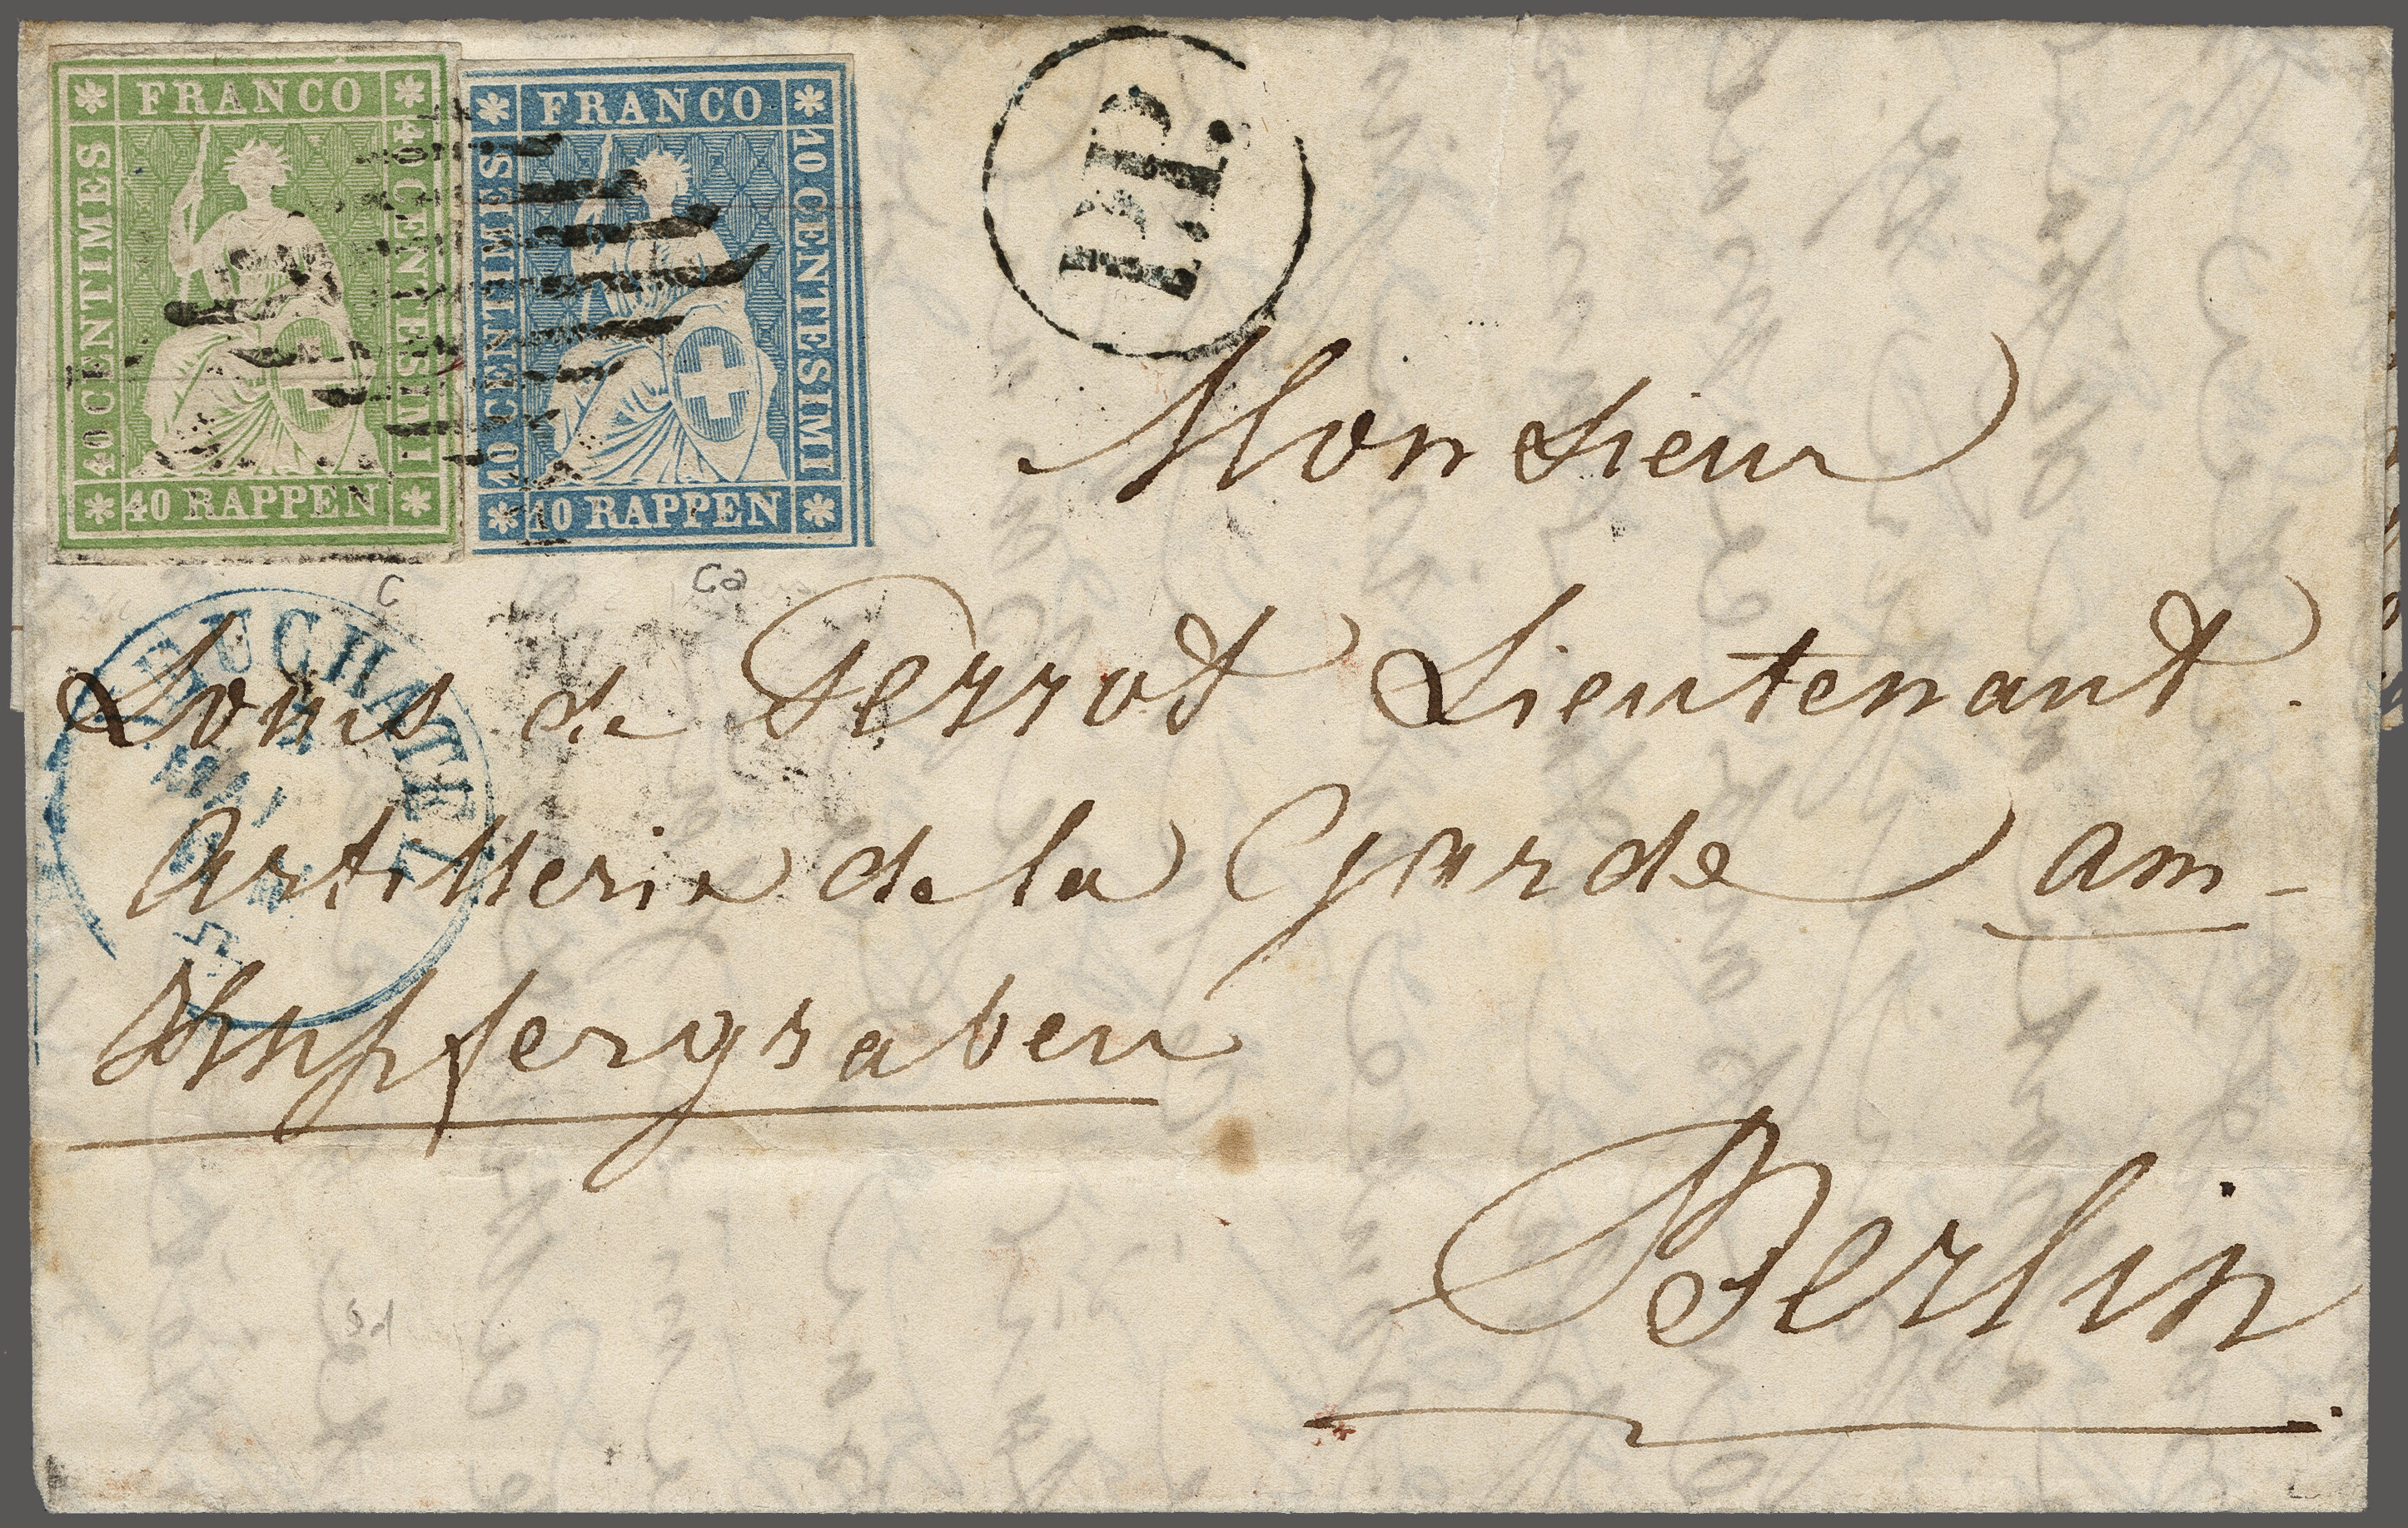 FRANCO
40 CENTIMES
40 CENTESIMI
40 RAPPEN
FRANCO
10 CENTIMES
10 CENTESIMI
10 RAPPEN
P.P.
C
Ca
NEUCHATEL
Monsieur
Louis de Perrot Lieutenant
Artillerie de la Garde am-
Khupfergraben
Berlin